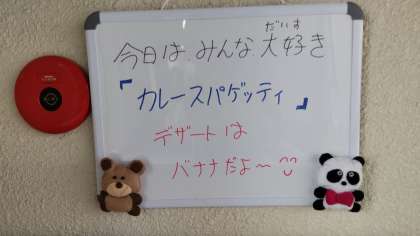 だいす
今日は、みんな大好き
「カレースパゲッティ」
デザートは
バナナだよ〜